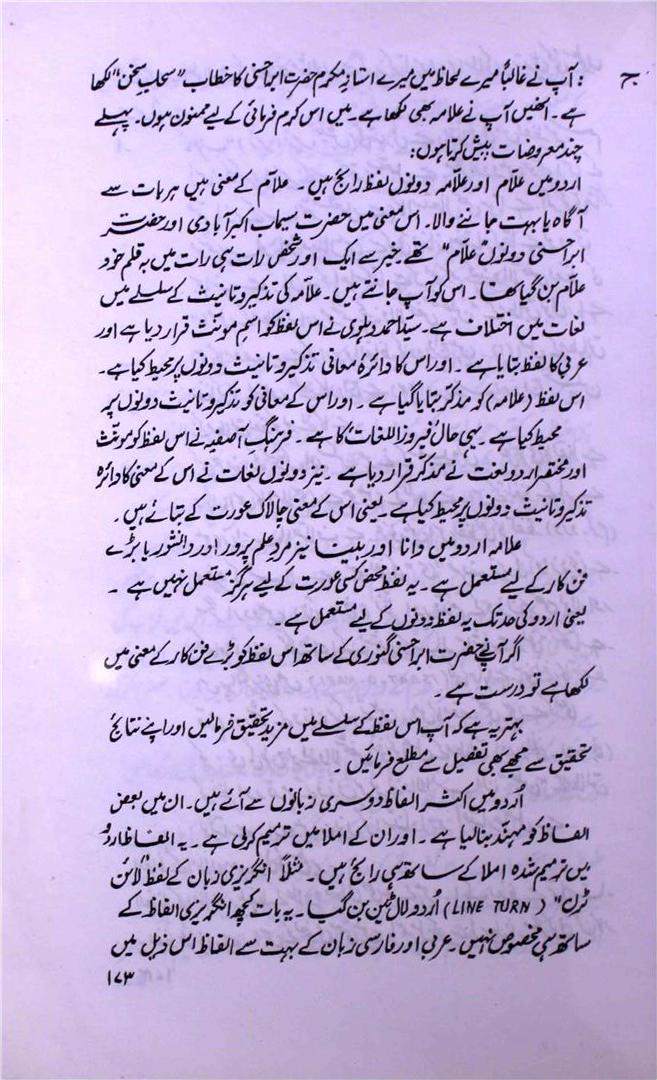 ج : آپ نے غالباً میرے لحاظ میں میرے استاذِ مکرم حضرت ابر احسنی کا خطاب "سحابِ سخن" لکھا
ہے۔ انھیں آپ نے علامہ بھی لکھا ہے۔ میں اس کرم فرمائی کے لیے ممنون ہوں۔ پہلے
چند معروضات پیش کرتا ہوں:
اردو میں علّام اور علّامہ دونوں لفظ رائج ہیں۔ علّام کے معنی ہیں ہر بات سے
آگاہ یا بہت جاننے والا۔ اس معنی میں حضرت سیماب اکبرآبادی اور حضرت
ابر احسنی دونوں "علّام" تھے خیر سے ایک اور شخص رات ہی رات میں بہ قلم خود
علّام بن گیا تھا۔ اس کو آپ جانتے ہیں۔ علّامہ کی تذکیر و تانیث کے سلسلے میں
لغات میں اختلاف ہے۔ سیّد احمد دہلوی نے اس لفظ کو اسمِ مونّث قرار دیا ہے اور
عربی کا لفظ بتایا ہے۔ اور اس کا دائرۂ معانی تذکیر و تانیث دونوں پر محیط کیا ہے۔
اس لفظ (علامہ) کو مذکّر بتایا گیا ہے۔ اور اس کے معانی کو تذکیر و تانیث دونوں پر
محیط کیا ہے۔ یہی حال فیروز اللغات کا ہے۔ فرہنگِ آصفیہ نے اس لفظ کو مونّث
اور مختصر اردو لغت نے مذکّر قرار دیا ہے۔ نیز دونوں لغات نے اس کے معنی کا دائرہ
تذکیر و تانیث دونوں پر محیط کیا ہے۔ یعنی اس کے معنی چالاک عورت کے بتائے ہیں۔
علامہ اردو میں دانا اور بینا نیز مردِ علم پرور اور دانشور یا بڑے
فن کار کے لیے مستعمل ہے۔ یہ لفظ محض کسی عورت کے لیے ہرگز مستعمل نہیں ہے۔
یعنی اردو کی حد تک یہ لفظ دونوں کے لیے مستعمل ہے۔
اگر آپ نے حضرت ابر احسنی گنوری کے ساتھ اس لفظ کو بڑے فن کار کے معنی میں
لکھا ہے تو درست ہے۔
بہتر یہ ہے کہ آپ اس لفظ کے سلسلے میں مزید تحقیق فرمائیں اور اپنے نتائج
تحقیق سے مجھے بھی تفصیل سے مطلع فرمائیں۔
اُردو میں اکثر الفاظ دوسری زبانوں سے آئے ہیں۔ ان میں بعض
الفاظ کو مہنّد بنا لیا ہے۔ اور ان کے املا میں ترمیم کر لی ہے۔ یہ الفاظ اردو
میں ترمیم شدہ املا کے ساتھ ہی رائج ہیں۔ مثلاً انگریزی زبان کے لفظ "لائن
ٹرن" (LINE TURN) اُردو لال ٹین بن گیا۔ یہ بات کچھ انگریزی الفاظ کے
ساتھ ہی مخصوص نہیں۔ عربی اور فارسی زبان کے بہت سے الفاظ اس ذیل میں
۱۷۳